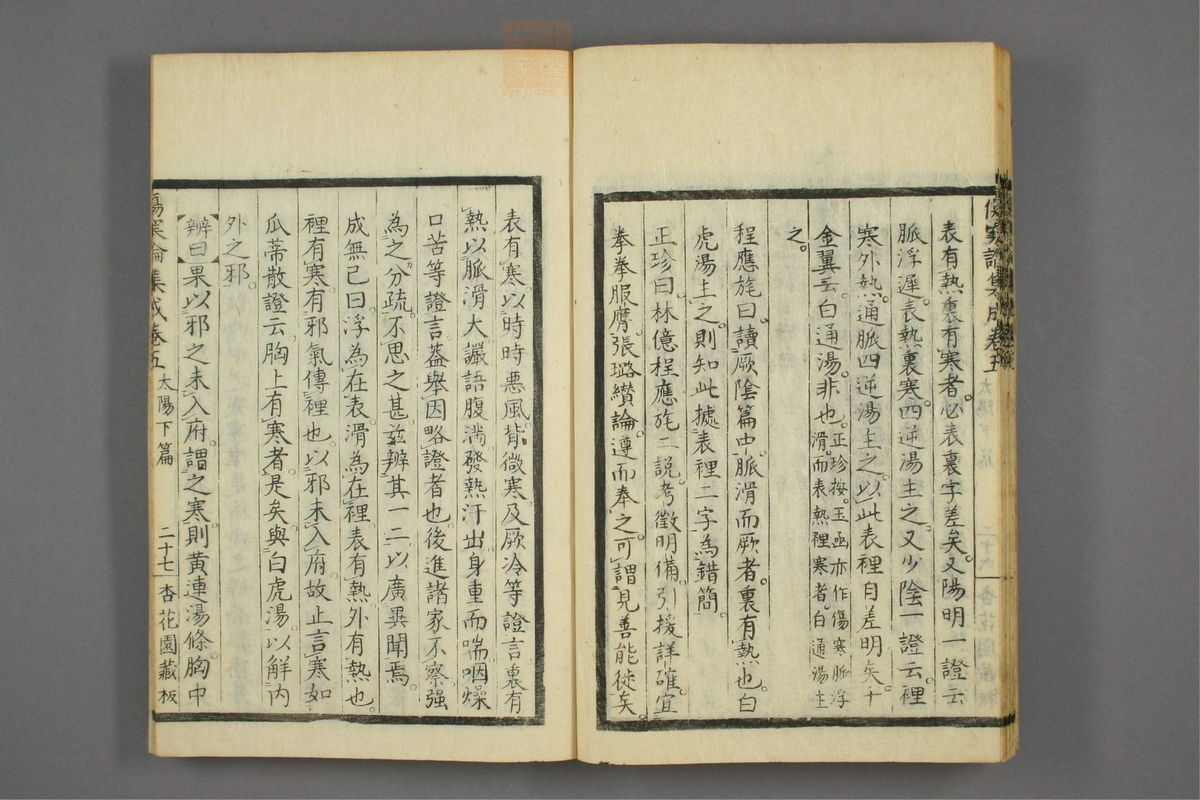 傷寒論集成卷五
表有熱裏有寒者必表裏字差矣又陽明一證云
脈浮遲表熱裏寒四逆湯主之又少陰一證云裡
寒外熱通脈四逆湯主之以此表裡自差明矣千
金翼云白通湯非也正珍按玉函亦作傷寒脈浮
滑而表熱裡寒者白通湯主
之
程應旄曰讀厥陰篇中脈滑而厥者裏有熱也白
虎湯主之則知此據表裡二字為錯簡
正珍曰林億程應旄二說考徵明備引援詳確宜
拳拳服膺張璐纘論遵而奉之可謂見善能徙矣
表有寒以時時惡風背微寒及厥冷等證言裏有
熱以脈滑大讝語腹滿發熱汗出身重而喘咽燥
口苦等證言蓋舉因略證者也後進諸家不察強
為之分疏不思之甚茲辨其一二以廣異聞焉
成無己曰浮為在表滑為在裡表有熱外有熱也
裡有寒有邪氣傳裡也以邪未入府故止言寒如
瓜蒂散證云胸上有寒者是矣與白虎湯以解內
外之邪
辨曰果以邪之未入府謂之寒則黃連湯條胸中
傷寒論集成卷五 太陽下篇 二十七 杏花園藏板